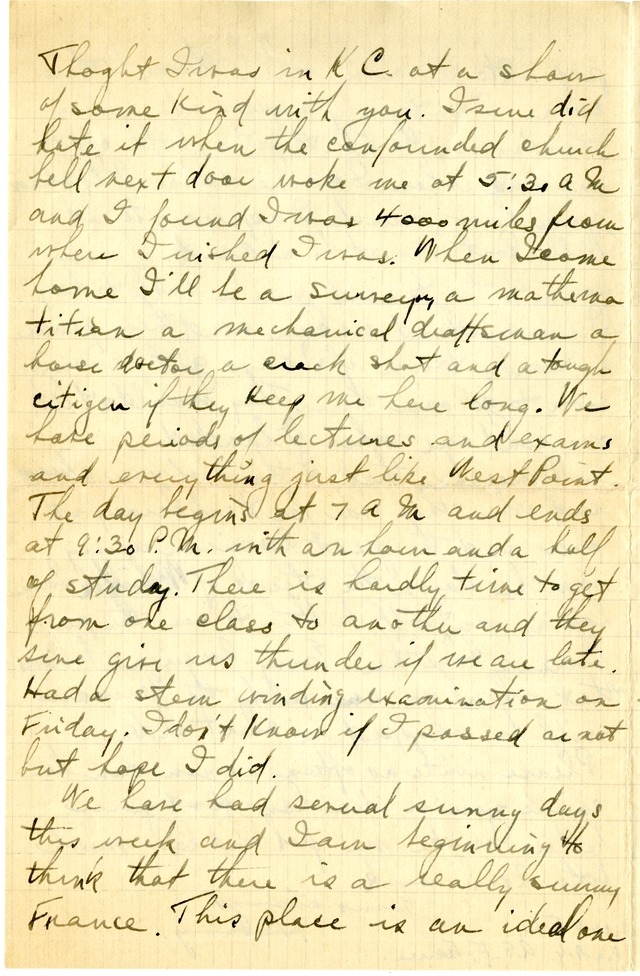 Thoght I was in K C. at a show
of some kind with you. I sure did
hate it when the confounded church
bell next door woke me at 5:30 A M
and I found I was 4000 miles from
where I wished I was. When I come
home I'll be a surveyor, a mathema
titian a mechanical draftsman a
horse doctor a crack shot and a tough
citizen if they keep me here long. We
have periods of lectures and exams
and everything just like West Point.
The day begins at 7 A M and ends
at 9:30 P.M. with an hour and a half
of study. There is hardly time to get
from one class to another and they
sure give us thunder if we are late.
Had a stem winding examination on
Friday. I don't know if I passed or not
but hope I did.
We have had several sunny days
this week and I am beginning to
think that there is a really sunny
France. This place is an ideal one